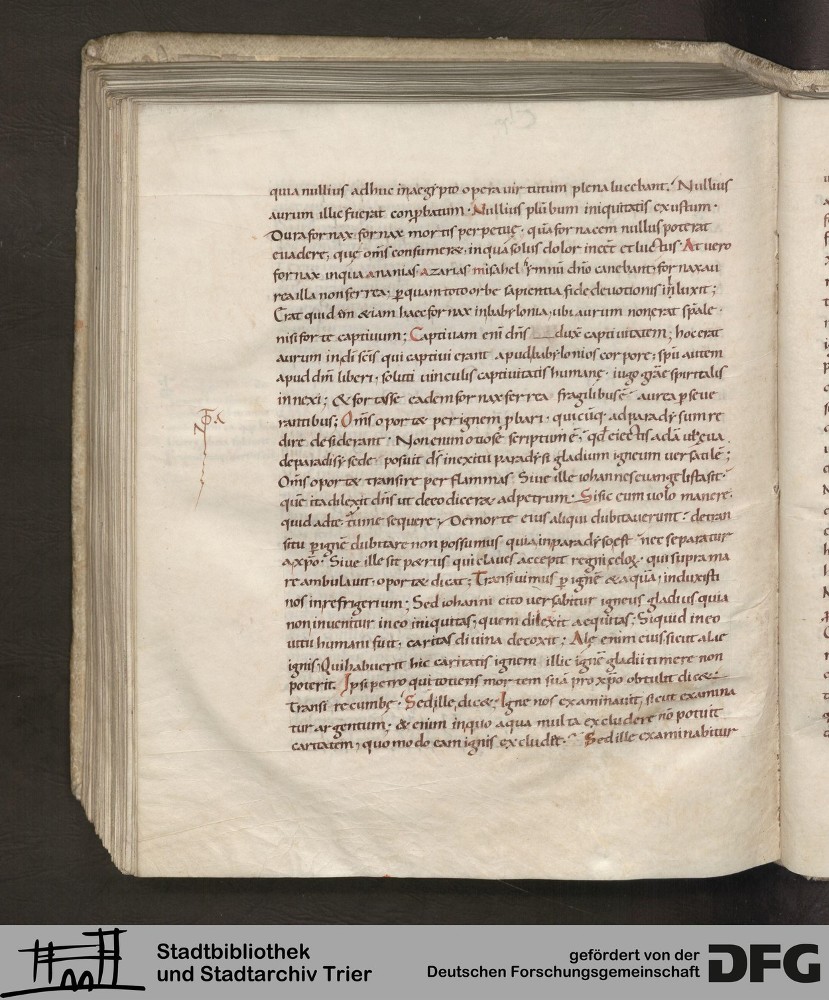 quia nullius adhuc in aegypto opera uirtutum plena lucebant; Nullius
aurum illic fuerat conprobatum. Nullius plūbum iniquitatis exustum.
Dura fornax. fornax mortis perpetuę. quā fornacem nullus poterat
euadere; quę om̄s consumeret; in qua solus dolor incēt et luctus. At uero
fornax in qua ananias azarias misahel ymnū dn̄o canebant. fornax au
rea illa non ferrea. ꝑ quam toto orbe sapientia fide deuotionis inluxit;
Erat quidem etiam haec fornax in babylonia, ubi aurum non erat sp̄ale.
nisi forte captiuum; Captiuam eni dn̄s duxit captiuitatem; hoc erat
aurum in dī sc̄is qui captiui erant apud babylonios corpore; sp̄u autem
apud dm̄ liberi. soluti uinculis captiuitatis humanę. iugo gr̄ae spiritalis
innexi; & fortasse eadem fornax ferrea fragilibus ē. aurea ꝑseue
rantibus; Om̄s oportet per ignem ꝓbari. quicūq. ad paradysum re
dire desiderant. Non enim otiose scriptum ē. qd eiectis adā ul eua
de paradisy sede. posuit ds̄ in exitu paradysi gladium igneum uersatilē;
Om̄s oportet transire per flammas. Siue ille iohannes euangelista sit.
quē ita dilexit dn̄s ut de eo diceret ad petrum. Si sic eum uolo manere.
quid ad te. tu me sequere; De morte eius aliqui dubitauerunt. de tran
situ ꝑ ignē dubitare non possumus. quia in paradyso est nec separatur
a xp̄o. Siue ille sit petrus qui claues accepit regni cęloꝝ. qui supra ma
re ambulauit. oportet dicat; Transiuimus ꝑ ignē & aquā, induxisti
nos in refrigerium; Sed iohanni cito uersabitur igneus gladius quia
non inuenitur in eo iniquitas; quem dilexit aequitas; Si quid in eo
uitii humani fuit. caritas diuina decoxit; Alę enim eius sicut alae
ignis; Qui habuerit hic caritatis ignem illic ignē gladii timere non
poterit. Ipsi petro qui totiens mortem suā pro xp̄o obtulit dicet
Transi recumbe. Sed ille dicet; Igne nos examinauit, sicut examina
tur argentum; & enim in quo aqua multa excludere nō potuit
caritatem; quomodo eam ignis excludet. Sed ille examinabitur
Stadtbibliothek
und Stadtarchiv Trier
gefördert von der
Deutschen Forschungsgemeinschaft
DFG